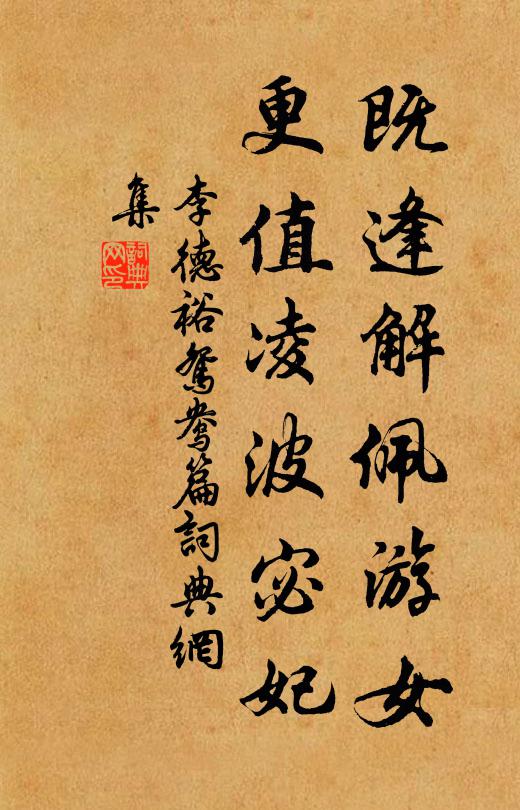 既逢解佩游女
更值凌波宓妃
李德裕鴛鴦篇詞典網
集
詞典
网印